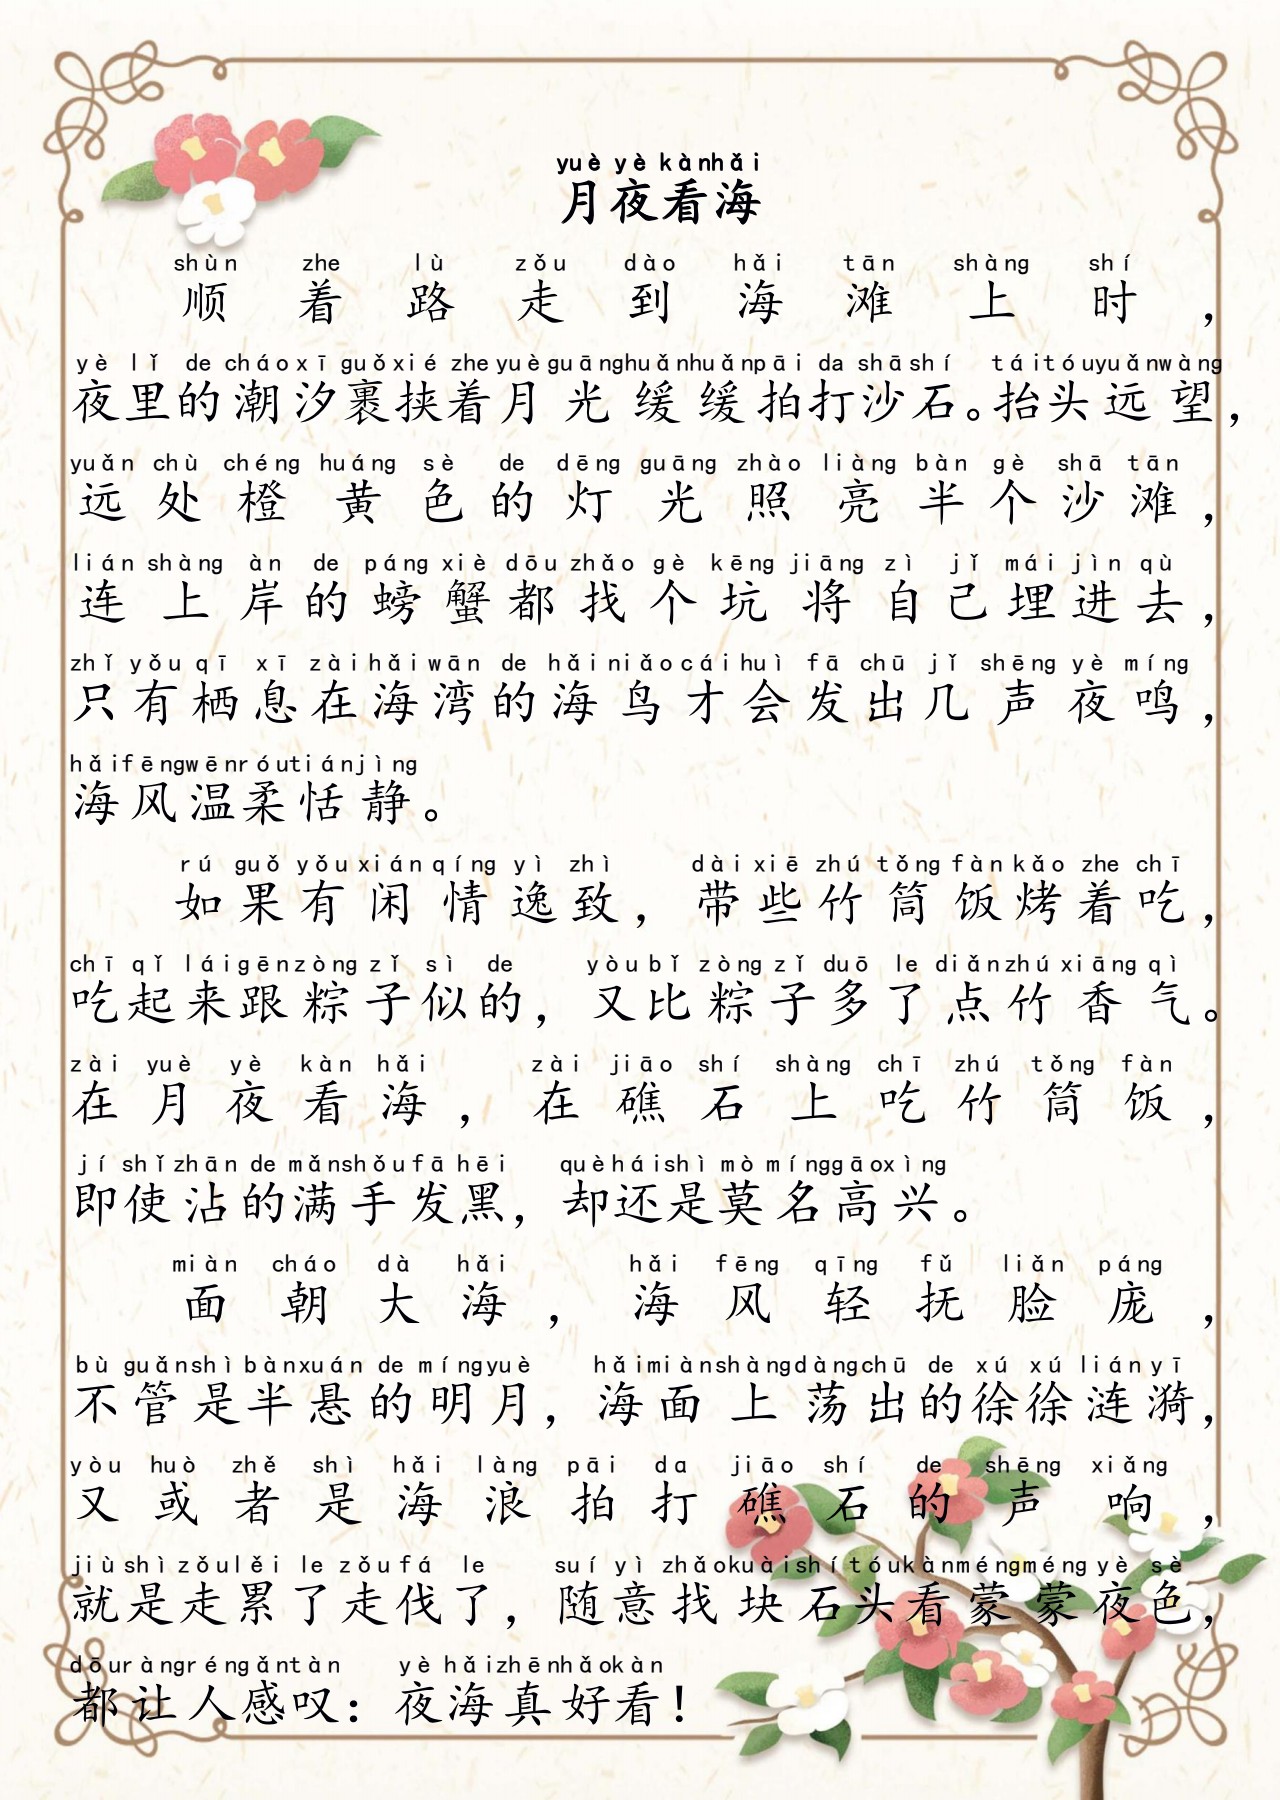 yuè yè kàn hǎi
月夜看海
shùn zhe lù zǒu dào hǎi tān shàng shí
顺着路走到海滩上时，
yè lǐ de cháo xī guǒ xié zhe yuè guāng huǎn huǎn pāi da shā shí tái tóu yuǎn wàng
夜里的潮汐裹挟着月光缓缓拍打沙石。抬头远望，
yuǎn chù chéng huáng sè de dēng guāng zhào liàng bàn gè shā tān
远处橙黄色的灯光照亮半个沙滩，
lián shàng àn de páng xiè dōu zhǎo gè kēng jiāng zì jǐ mái jìn qù
连上岸的螃蟹都找个坑将自己埋进去，
zhǐ yǒu qī xī zài hǎi wān de hǎi niǎo cái huì fā chū jǐ shēng yè míng
只有栖息在海湾的海鸟才会发出几声夜鸣，
hǎi fēng wēn róu tián jìng
海风温柔恬静。
rú guǒ yǒu xián qíng yì zhì dài xiē zhú tǒng fàn kǎo zhe chī
如果有闲情逸致，带些竹筒饭烤着吃，
chī qǐ lái gēn zòng zǐ sì de yòu bǐ zòng zǐ duō le diǎn zhú xiāng qì
吃起来跟粽子似的，又比粽子多了点竹香气。
zài yuè yè kàn hǎi zài jiāo shí shàng chī zhú tǒng fàn
在月夜看海，在礁石上吃竹筒饭，
jí shǐ zhān de mǎn shǒu fā hēi què hái shì mò míng gāo xìng
即使沾的满手发黑，却还是莫名高兴。
miàn cháo dà hǎi hǎi fēng qīng fǔ liǎn páng
面朝大海，海风轻抚脸庞，
bù guǎn shì bàn xuán de míng yuè hǎi miàn shàng dàng chū de xú xú lián yī
不管是半悬的明月，海面上荡出的徐徐涟漪，
yòu huò zhě shì hǎi làng pāi da jiāo shí de shēng xiǎng
又或者是海浪拍打礁石的声响，
jiù shì zǒu lěi le zǒu fá le suí yì zhǎo kuài shí tóu kàn méng méng yè sè
就是走累了走伐了，随意找块石头看蒙蒙夜色，
dōu ràng rén gǎn tàn yè hǎi zhēn hǎo kàn
都让人感叹：夜海真好看！